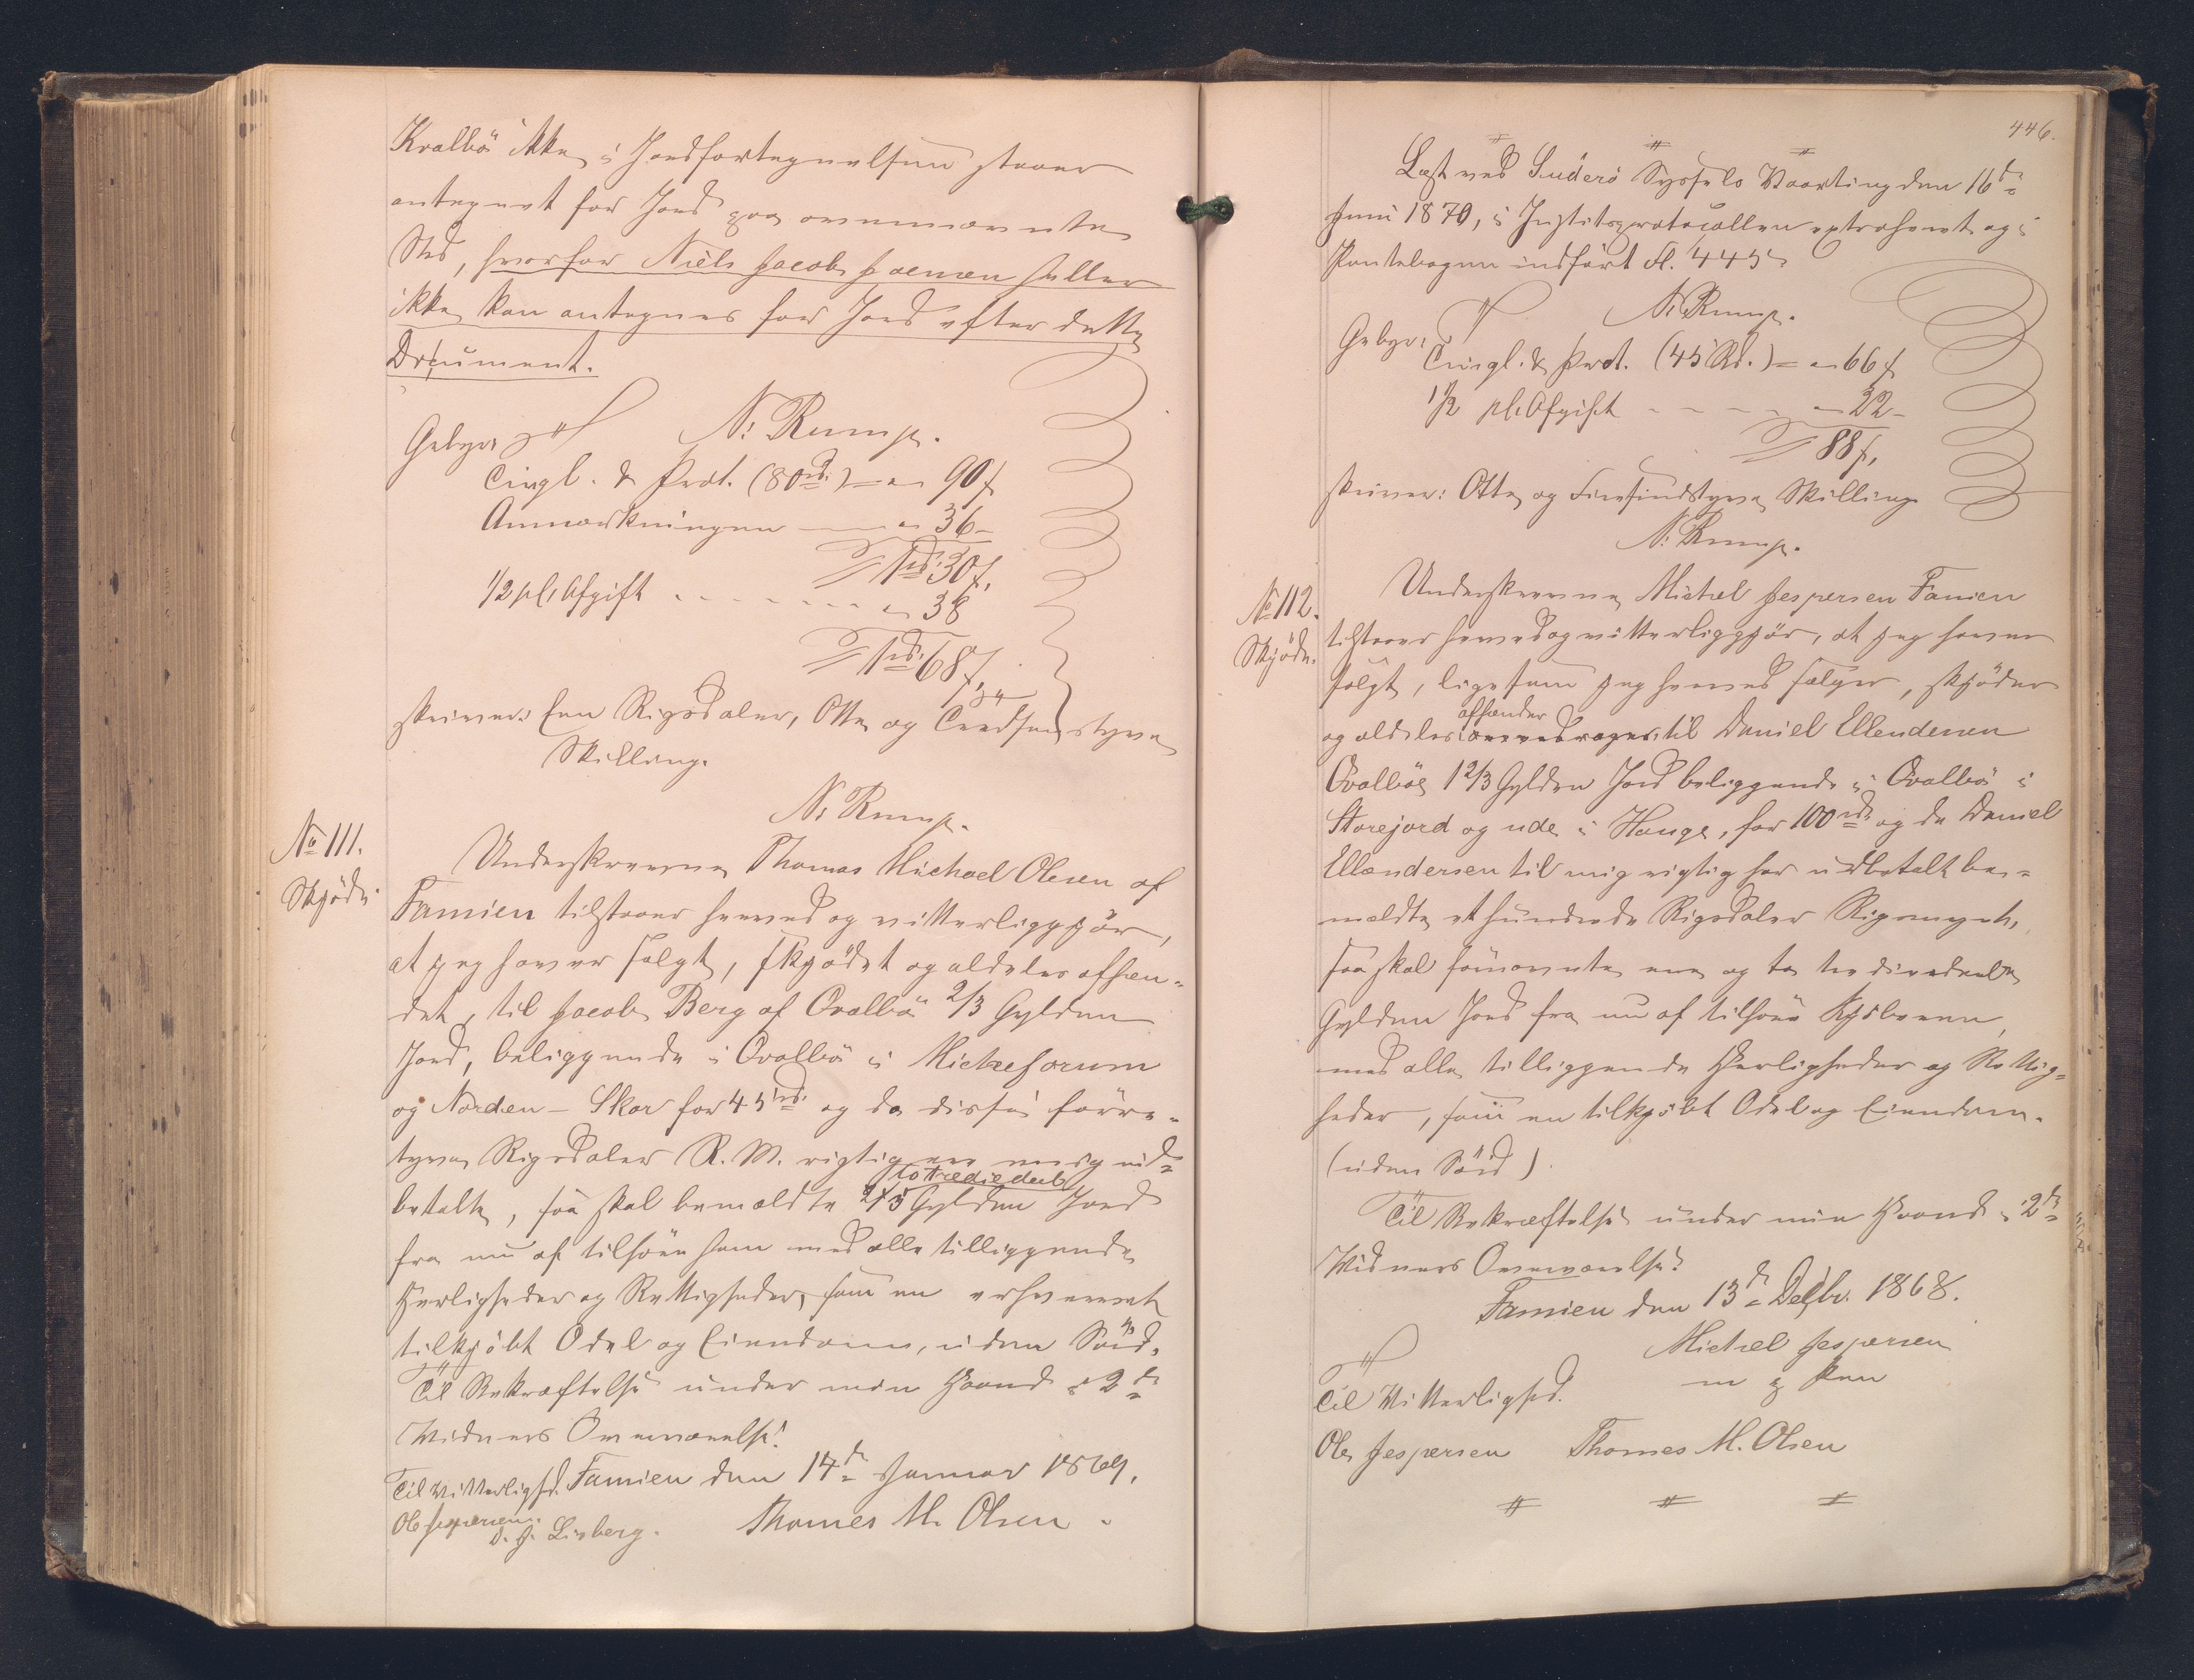 Kvalbö ikke i Jordfortegnelsen staaer
antegnet for Jord paa ovennævnte
Sted, hvorfor Niels Jacob Joensen heller
ikke kan antegnes for Jord efter dette
Document.
N: Rump.
Gebyr:
Tingl. & Prot. (80 rd.) = " 90 ß
Anmærkningen — " 36 -
1 rd. 30 ß,
1/2 pCt Afgift - - - - - " 38
1 rd. 68 ß,
skriver: Een Rigsdaler, Otte og Tredsindstyve
Skilling.
N: Rump.
No 111.
Skjöde.
Underskrevne Thomas Michael Olesen af
Famien tilstaaer herved og vitterliggjör,
at jeg haver solgt, skjödet og aldeles afhæn-
det, til Jacob Berg af Qvalbö 2/3 Gylden
Jord, beliggende i Qvalbö i
og Norden-Skor for 45 rd. og da disse förre-
tyve Rigsdaler R. M. rigtig er mig ud-
to Trediedeel
betalte, saa skal bemældte 2/3 Gylden Jord
fra nu af tilhöre ham med alle tilliggende
Herligheder og Rettigheder, som en erhvervet
tilkjöbt Odel og Eiendom, uden Söid.
Til Bekræftelse under min Haand i 2de
Widners Overværelse!
Famien den 14de Januar 1869.
Til Vitterlighed.
Thomes M. Olsen.
Ole Jespersen.
D. J. Lisberg.
446.
Læst ved Suderö Syssels Vaarting den 16de
Juni 1870, i Justitsprotocollen extraheret og i
Pantebogen indfört fl. 445.
N: Rump.
Gebyr:
Tingl. & Prot. (45 Rd.) = " 66 ß
1/2 pCt Afgift - - - - " 22 -
88 ß,
skriver: Otte og Fiirsindstyve Skilling
N: Rump.
No 112.
Skjöde.
Underskrevne Michel Jespersen Famien
tilstaaer herved og vitterliggjör, at jeg haver
solgt, ligesom jeg herved sælger, skjöder
afhænder
og aldeles overdrager til Daniel Ellendersen
Qvalböe 1 2/3 Gylden Jord beliggende i Qvalbö i
Storejord og ude i Hauge, for 100 rd. og da Daniel
Ellandersen til mig rigtig har udbetalt be-
mældte et hundrede Rigsdaler Rigsmynt,
saa skal förnævnte een og to trediedeele
Gylden Jord fra nu af tilhöre Kjöberen,
med alle tilliggende Herligheder og Rettig-
heder, som en tilkjöbt Odel og Eiendom.
(uden Söid).
Til Bekræftelse under min Haand i 2de
Widners Overværelse!
Famien den 13de Decbr. 1868.
Michel Jespersen
m p Pen
Til Vitterlighed.
Ole Jespersen Thomes M. Olsen